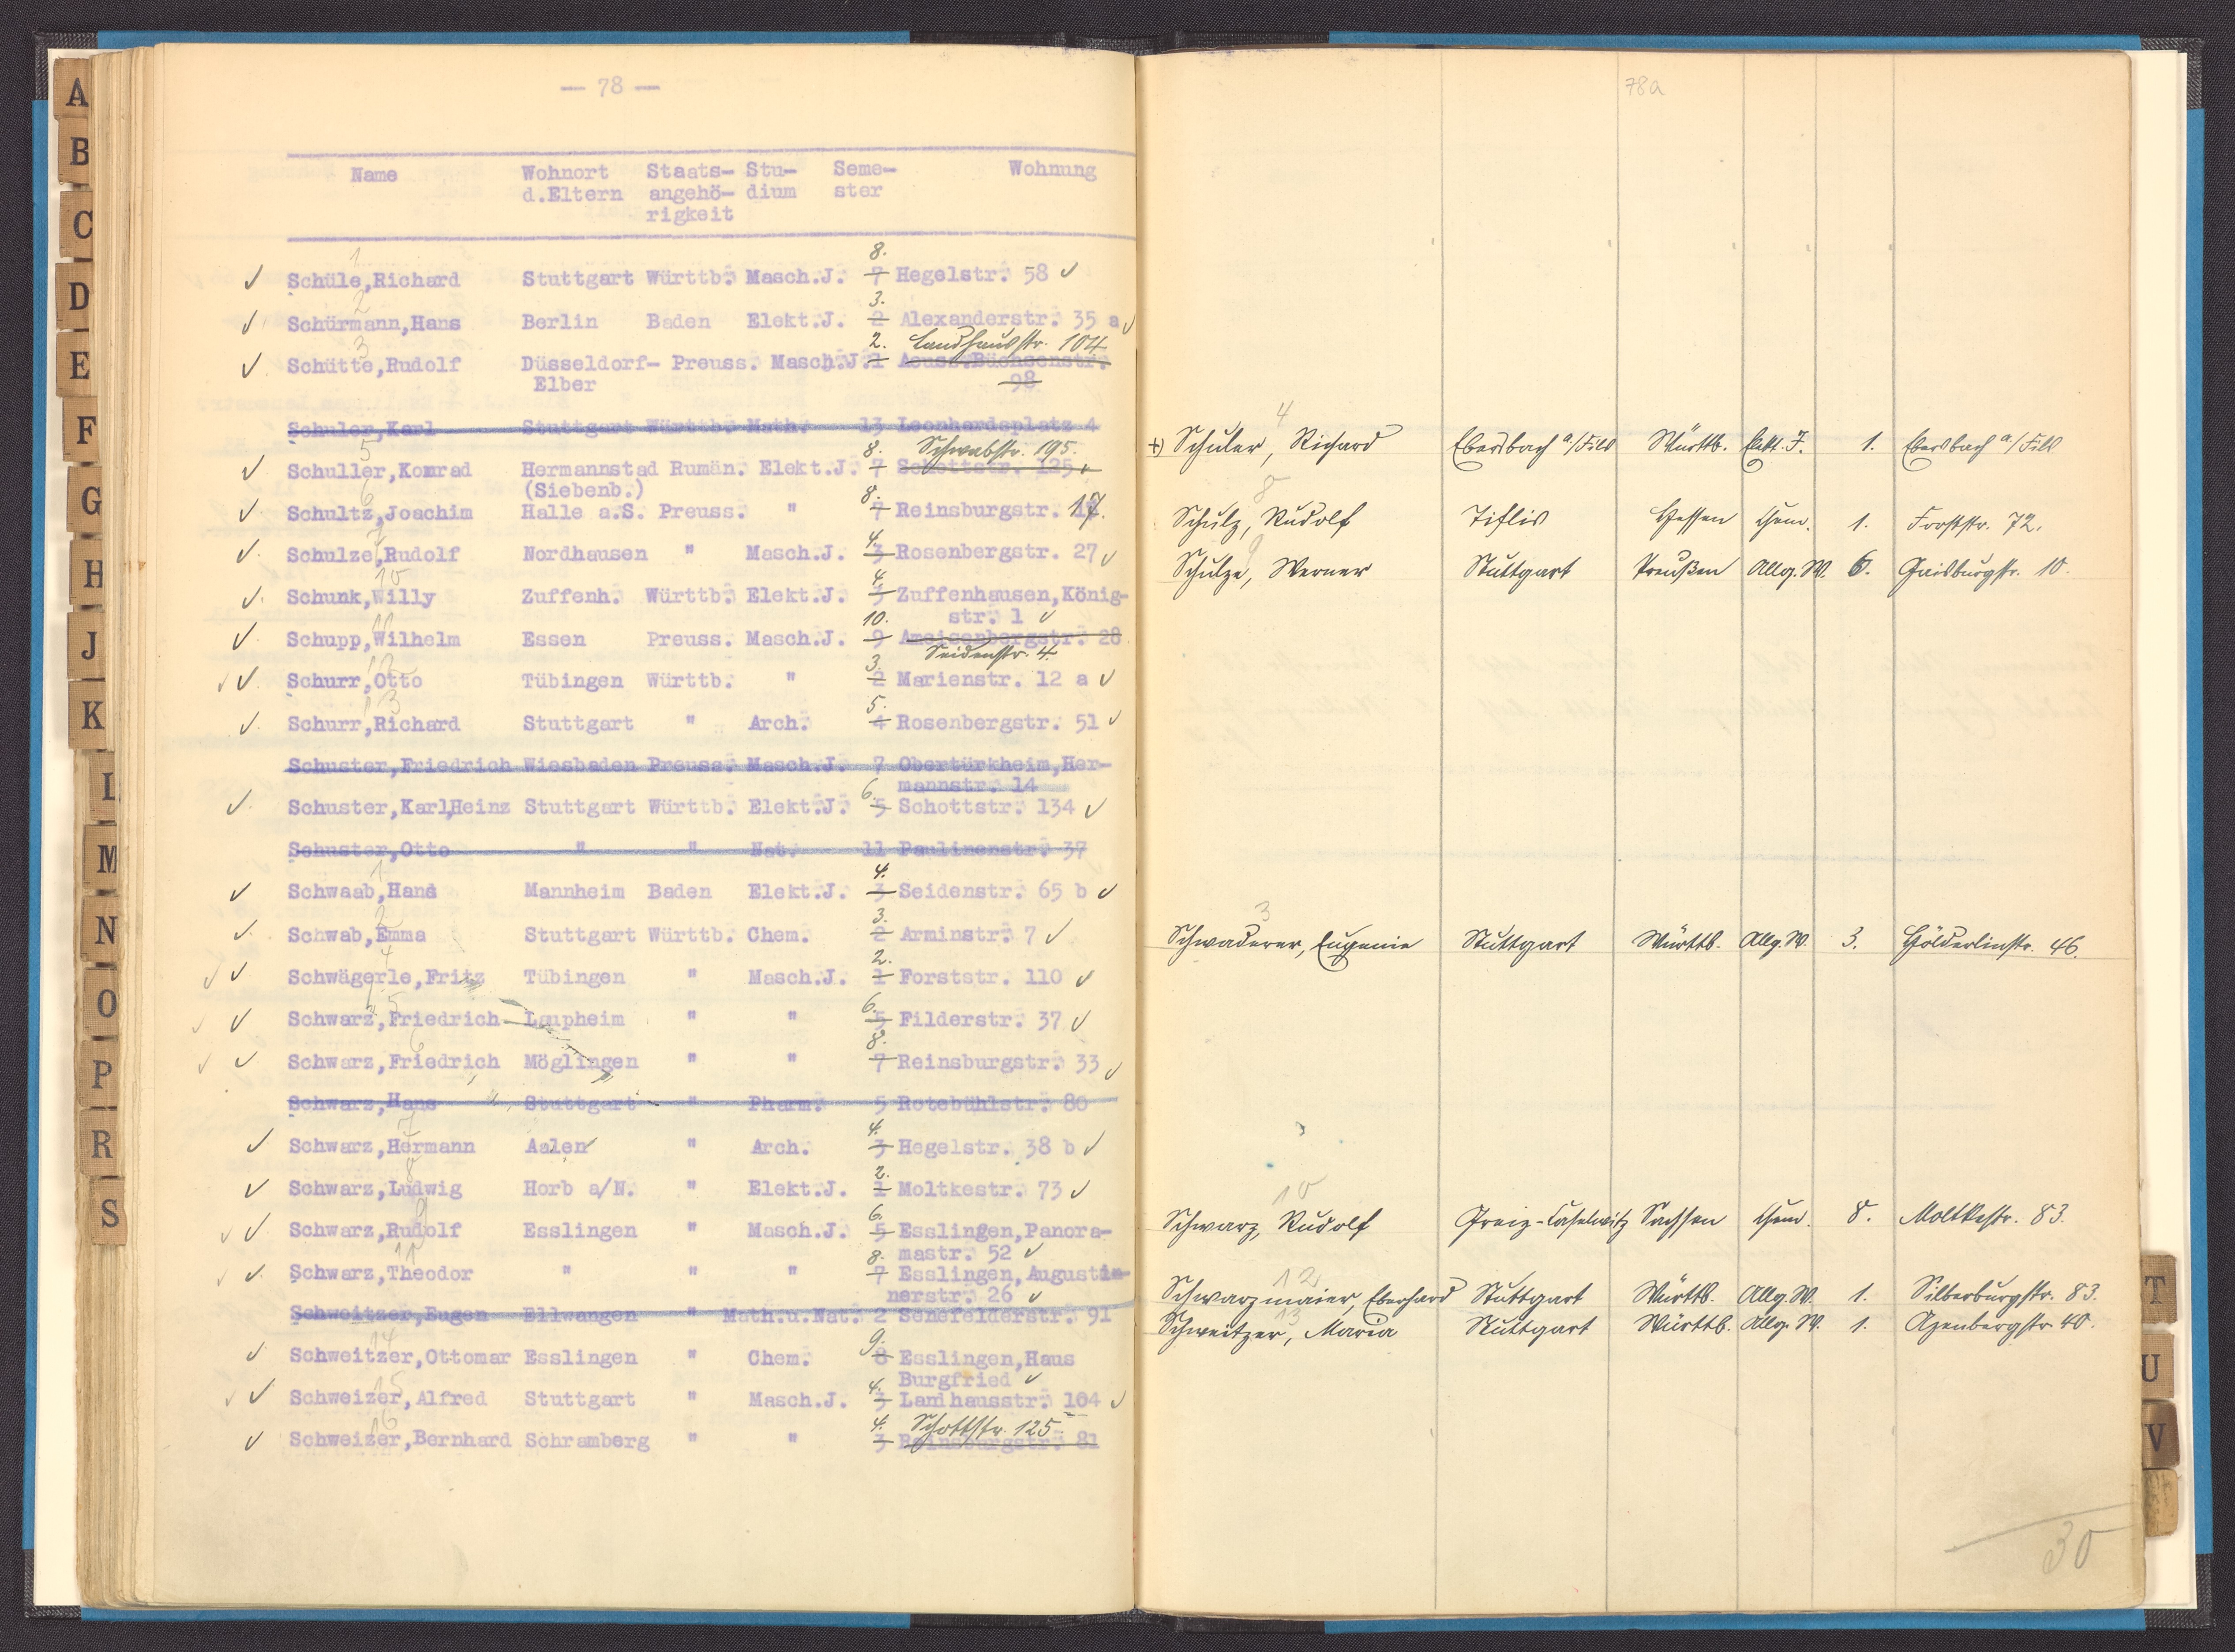 A
B
C
D
E
F
G
H
J
K
L
M
N
O
P
R
S
— 78 —
Name Wohnort Staats- Stu- Seme- Wohnung
d.Eltern angehö- dium ster
rigkeit
1
8.
Schüle,Richard Stuttgart Württb. Masch.J. 7 Hegelstr. 58
2 3.
Schürmann,Hans Berlin Baden Elekt.J. 2 Alexanderstr. 35 a
3 2. Landhausstr. 104
Schütte,Rudolf Düsseldorf- Preuss. Masch.J. 1 Aeuss.Büchsenstr.
Elber 98
Schuler,Karl Stuttgart Württb. Math. 13 Leonhardsplatz 4
5 8. Schwabstr. 195.
Schuller,Konrad Hermannstad Rumän. Elekt.J. 7 Schottstr. 125
(Siebenb.)
6 8.
Schultz,Joachim Halle a.S. Preuss. " 7 Reinsburgstr. 17.
7 4.
Schulze,Rudolf Nordhausen " Masch.J. 3 Rosenbergstr. 27
10 4.
Schunk,Willy Zuffenh. Württb. Elekt.J. 3 Zuffenhausen,König-
str. 1
11 10.
Schupp,Wilhelm Essen Preuss. Masch.J. 9 Ameisenbergstr. 28
Seidenstr. 4.
12 3.
Schurr,Otto Tübingen Württb. " 2 Marienstr. 12 a
13 5.
Schurr,Richard Stuttgart " Arch. 4 Rosenbergstr. 51
Schuster,Friedrich Wiesbaden Preuss. Masch.J. 7 Obertürkheim,Her-
mannstr. 14
6.
Schuster,Karl,Heinz Stuttgart Württb. Elekt.J. 5 Schottstr. 134
Schuster,Otto " " Nat. 11 Paulinenstr. 37
1 4.
Schwaab,Hans Mannheim Baden Elekt.J. 3 Seidenstr. 65 b
2 3.
Schwab,Emma Stuttgart Württb. Chem. 2 Arminstr. 7
4 2.
Schwägerle,Fritz Tübingen " Masch.J. 1 Forststr. 110
5 6.
Schwarz,Friedrich Laupheim " " 5 Filderstr. 37
6 8.
Schwarz,Friedrich Möglingen " " 7 Reinsburgstr. 33
Schwarz,Hans Stuttgart " Pharm. 5 Rotebühlstr. 80
7 4.
Schwarz,Hermann Aalen " Arch. 3 Hegelstr. 38 b
8 2.
Schwarz,Ludwig Horb a/N. " Elekt.J. 1 Moltkestr. 73
9 6.
Schwarz,Rudolf Esslingen " Masch.J. 5 Esslingen,Panora-
mastr. 52
11 8.
Schwarz,Theodor " " " 7 Esslingen,Augusti-
nerstr. 26
Schweitzer,Eugen Ellwangen " Math.u.Nat. 2 Senefelderstr. 91
14 9.
Schweitzer,Ottomar Esslingen " Chem. 8 Esslingen,Haus
Burgfried
15 4.
Schweizer,Alfred Stuttgart " Masch.J. 3 Landhausstr. 104
16 4. Schottstr. 125.
Schweizer,Bernhard Schramberg " " 3 Reinsburgstr. 81
78a
4
+) Schuler, Richard Ebersbach a/Fils Württb. Elekt. J. 1. Ebersbach a/Fils
8
Schulz, Rudolf Tiflis Hessen Chem. 1. Forststr. 72.
9
Schulze, Werner Stuttgart Preußen Allg. W. 6. Gaisburgstr. 10.
3
Schwaderer, Eugenie Stuttgart Württb. Allg. W. 3. Hölderlinstr. 46.
10
Schwarz, Rudolf Greiz- Sachsen Chem. 8. Moltkestr. 83.
12
Schwarzmaier, Eberhard Stuttgart Württb. Allg. W. 1. Silberburgstr. 83.
13
Schweitzer, Maria Stuttgart Württb. Allg. W. 1. Azenbergstr. 40.
30
T
U
V